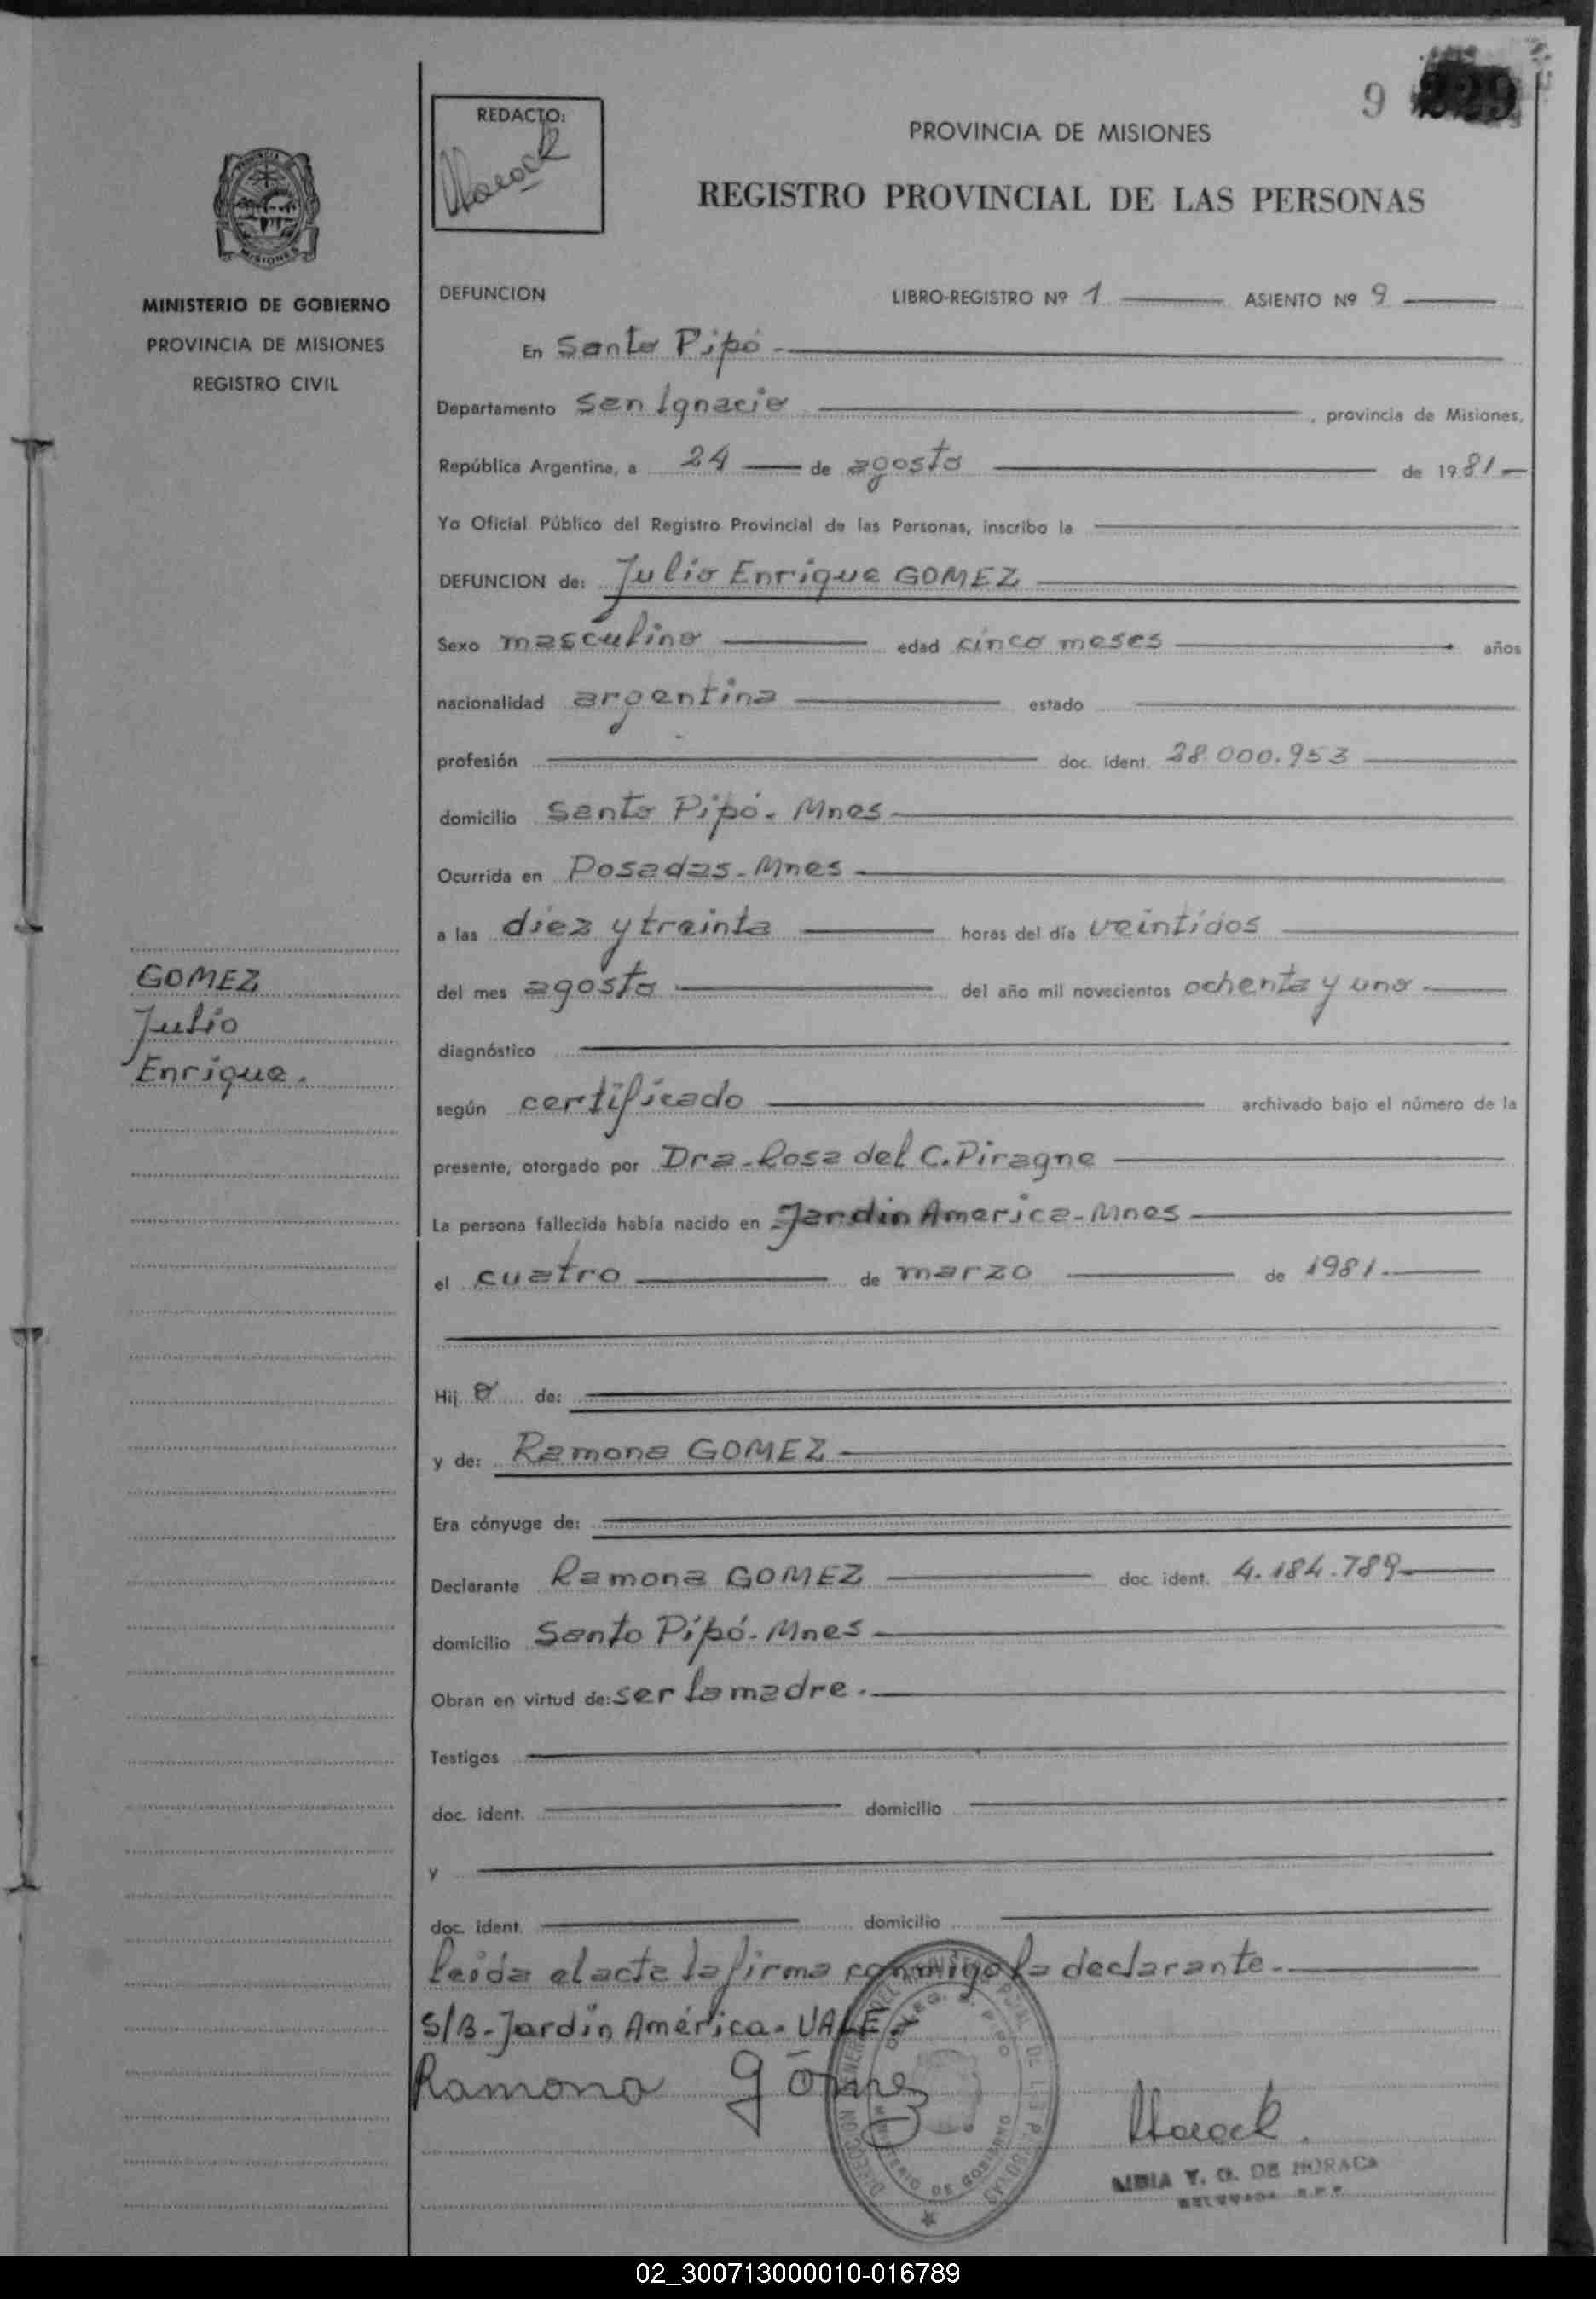 9
REDACTO:
PROVINCIA DE MISIONES
REGISTRO PROVINCIAL DE LAS PERSONAS
MISIONES
MINISTERIO DE GOBIERNO
PROVINCIA DE MISIONES
REGISTRO CIVIL
DEFUNCION LIBRO-REGISTRO Nº 1 ASIENTO Nº 9
En Santo Pipó
Departamento San Ignacio, provincia de Misiones,
República Argentina, a 24 de agosto de 1981
Yo Oficial Público del Registro Provincial de las Personas, inscribo la
DEFUNCION de: Julio Enrique GOMEZ
Sexo masculino edad cinco meses años
nacionalidad argentina estado
profesión doc. ident. 28.000.953
domicilio Santo Pipó. Mnes
Ocurrida en Posadas-Mnes
a las diez y treinta horas del día veintidos
del mes agosto del año mil novecientos ochenta y uno
GOMEZ
Julio
Enrique.
diagnóstico
según certificado archivado bajo el número de la
presente, otorgado por Dra. Rosa del C. Piragne
La persona fallecida había nacido en Jardin America-Mnes
el cuatro de marzo de 1981.
Hijo de:
y de: Ramona GOMEZ
Era cónyuge de:
Declarante Ramona GOMEZ doc. ident. 4.184.789
domicilio Santo Pipó. Mnes
Obran en virtud de: ser la madre.
Testigos
doc. ident. domicilio
y
doc. ident. domicilio
Leida el acta la firma conmigo la declarante.
S/B-Jardin América. VALE.
Ramona Gómez
DE GOBIERNO
LIDIA Y. G. DE HORACK
02_300713000010-016789